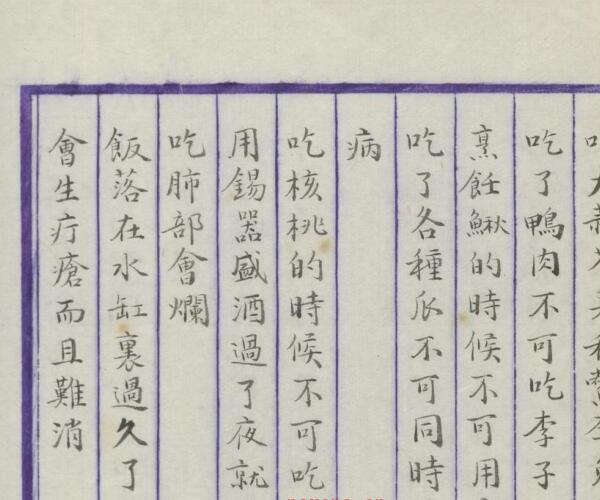 吃了鴨肉不可吃李子
烹飪鰍的時候不可用
吃了各種瓜不可同時
病
吃核桃的時候不可吃
用錫器盛酒過了夜就
吃肺部會爛
飯落在水缸裏過久了
會生疔瘡而且難消